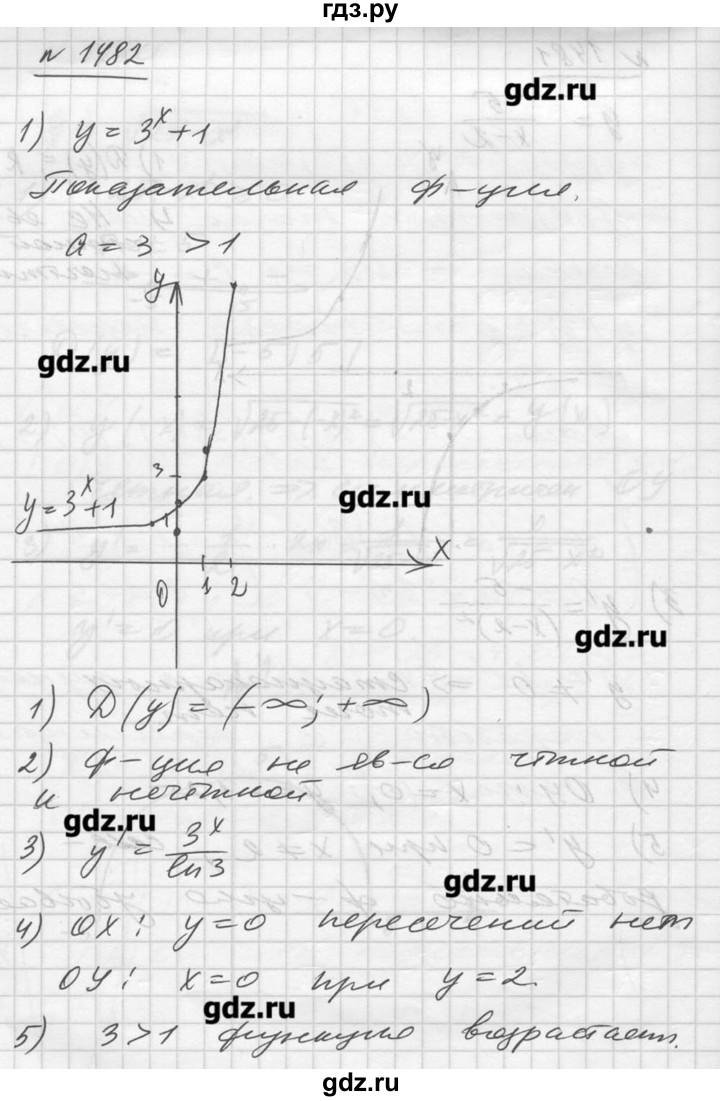 гдз.ру
№ 1482
gdz.ru
1) y = 3^x + 1
Показательная ф-ция.
a = 3 > 1
y
gdz.ru
3
gdz.ru
y = 3^x + 1
1
x
0 1 2
gdz.ru
1) D(y) = (-∞; +∞)
2) ф-ция не яв-ся чётной
и нечётной
gdz.ru
3) y' = 3^x / ln 3
gdz.ru
4) OX: y = 0 пересечений нет
OY: x = 0 при y = 2.
gdz.ru
5) 3 > 1 функция возрастает.
gdz.ru